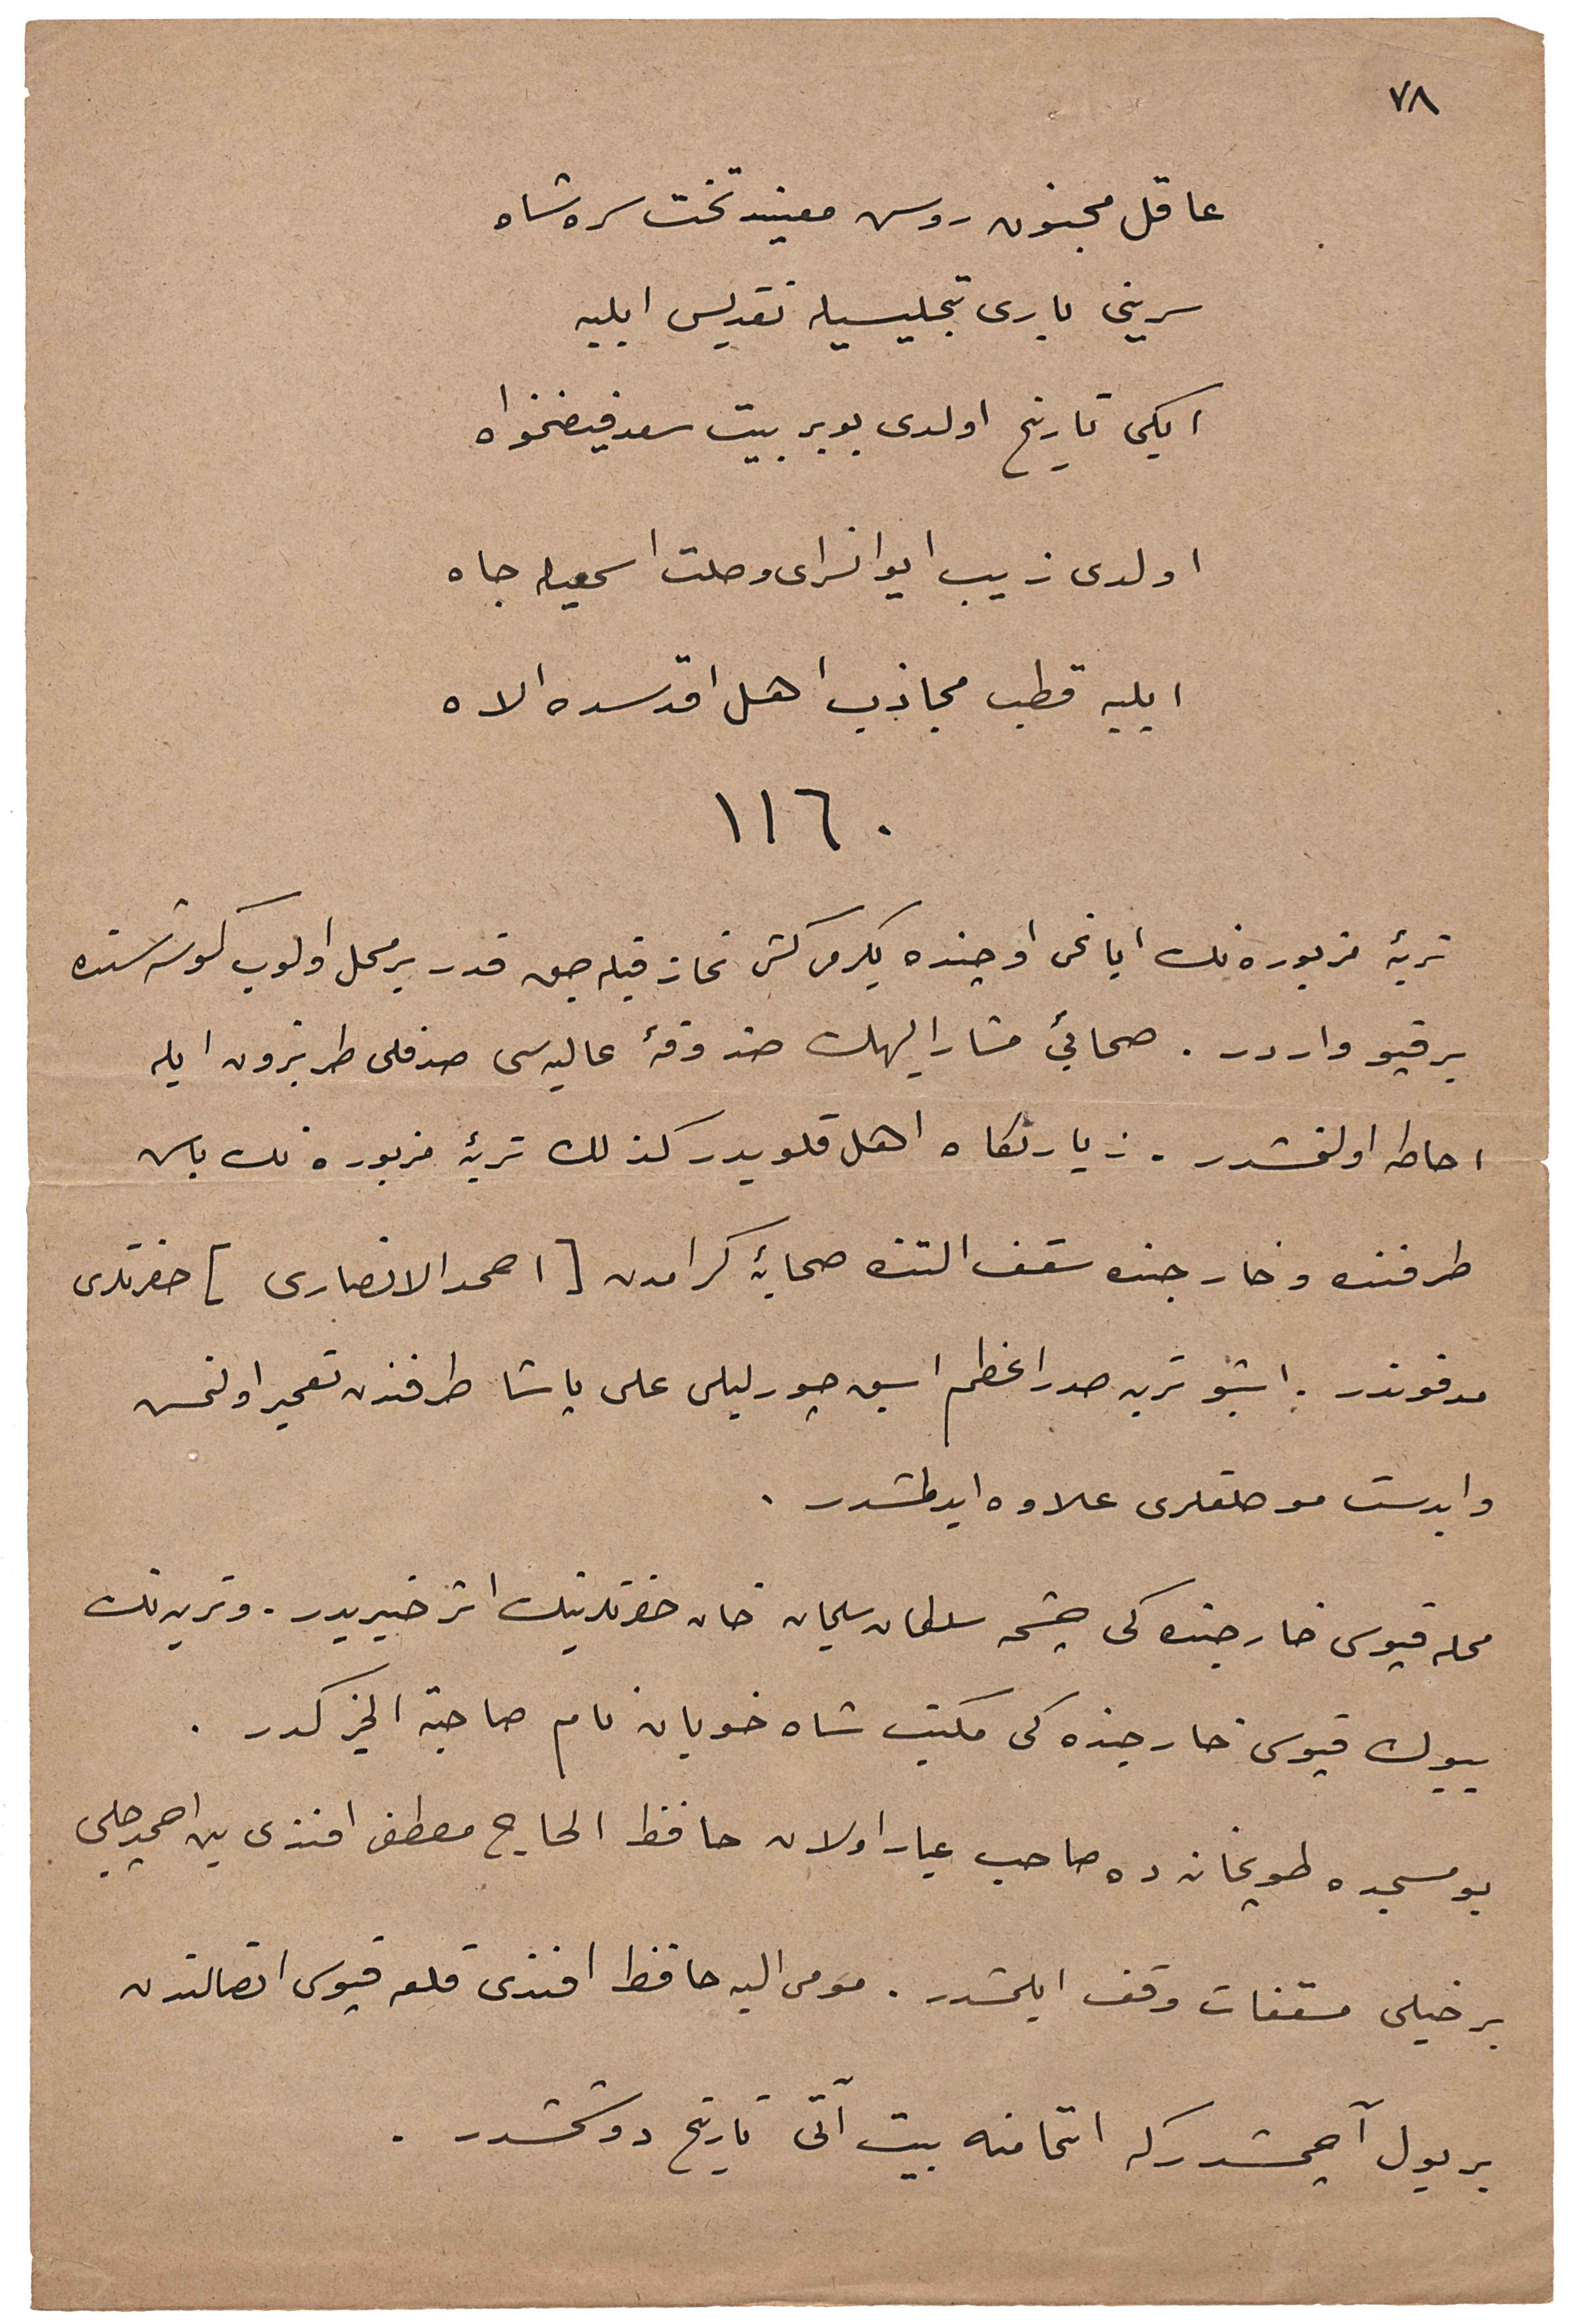 ٧٨
عاقل مجنون روس معنیده تخت سره شاه
سرینی باری تجلیسیله تقدیس ایلیه
ایکی تاریخ اولدی بو بر بیت سعد فیضخواه
اولدی زیب ایوانسرای وصلت اسمعیل جاه
ایلیه قطب مجاذیب اهل اقدسده الاه
١١٦٠
تربهٔ مزبوره نك ایاغی اوچنده یكرمی كشی نماز قیله جق قدر بر محل اولوب كوشه سنده
بر قپو واردر . صحابیٔ مشار الیهك صندوقهٔ عالیه سی صدفلی طربزون ایله
احاطه اولنمشدر . زیارتكاه اهل قلوبدر كذلك تربهٔ مزبوره نك باش
طرفنده و خارجنده سقف التنده صحابهٔ كرامدن [ احمد الانصاری ] حضرتلری
مدفوندر . اشبو تربه صدر اعظم اسبق چورلیلی علی پاشا طرفندن تعمیر اولنمش
و ابدست موصلقلری علاوه ایدلمشدر .
محله قپوسی خارجنده كی چشمه سلطان سلیمان خان حضرتلرینك اثر خیریدر . و تربه نك
بیوك قپوسی خارجنده كی مكتب شاه خوبان نام صاحبة الخیركدر .
بو مسجده طوپخانه ده صاحب عیار اولان حافظ الحاج مصطفی افندی بن احمد چلبی
بر خیلی مسقفات وقف ایلمشدر . مومی الیه حافظ افندی قلعه قپوسی اتصالندن
بر یول آچمشدر كه اتمامنه بیت آتی تاریخ دوشمشدر .